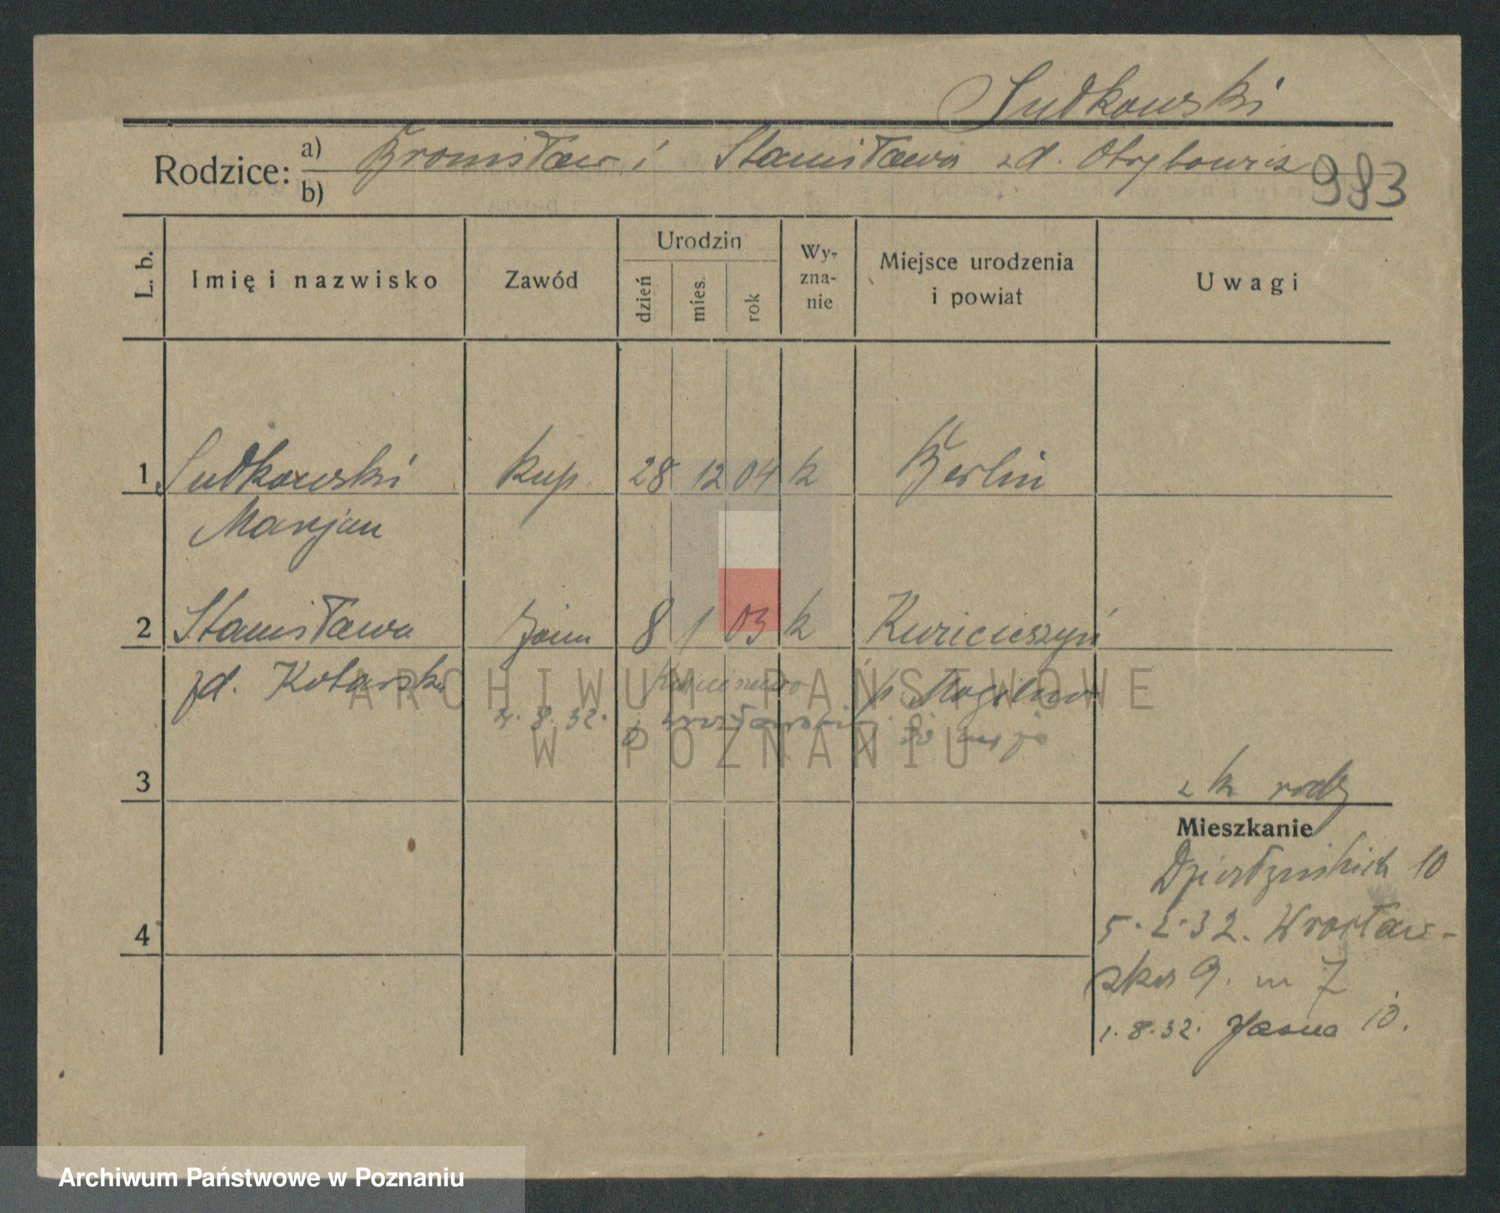 Sudkowski
Rodzice: a) Bronisław i Stanisława zd. 983
b)
L. b. Imię i nazwisko Zawód Urodzin dzień mies. rok Wy-zna-nie Miejsce urodzenia i powiat Uwagi
1 Sudkowski kup. 28 12 04 k Berlin
Marjan
2 Stanisława 8 1 03 k
zd. Kotarska p. Mogilno
4.8.32.
3 rodz
Mieszkanie
10
4 5.2.32. Wrocław-
ska 9. m 7
1.8.32. Jasna 10.
ARCHIWUM PAŃSTWOWE
W POZNANIU
Archiwum Państwowe w Poznaniu